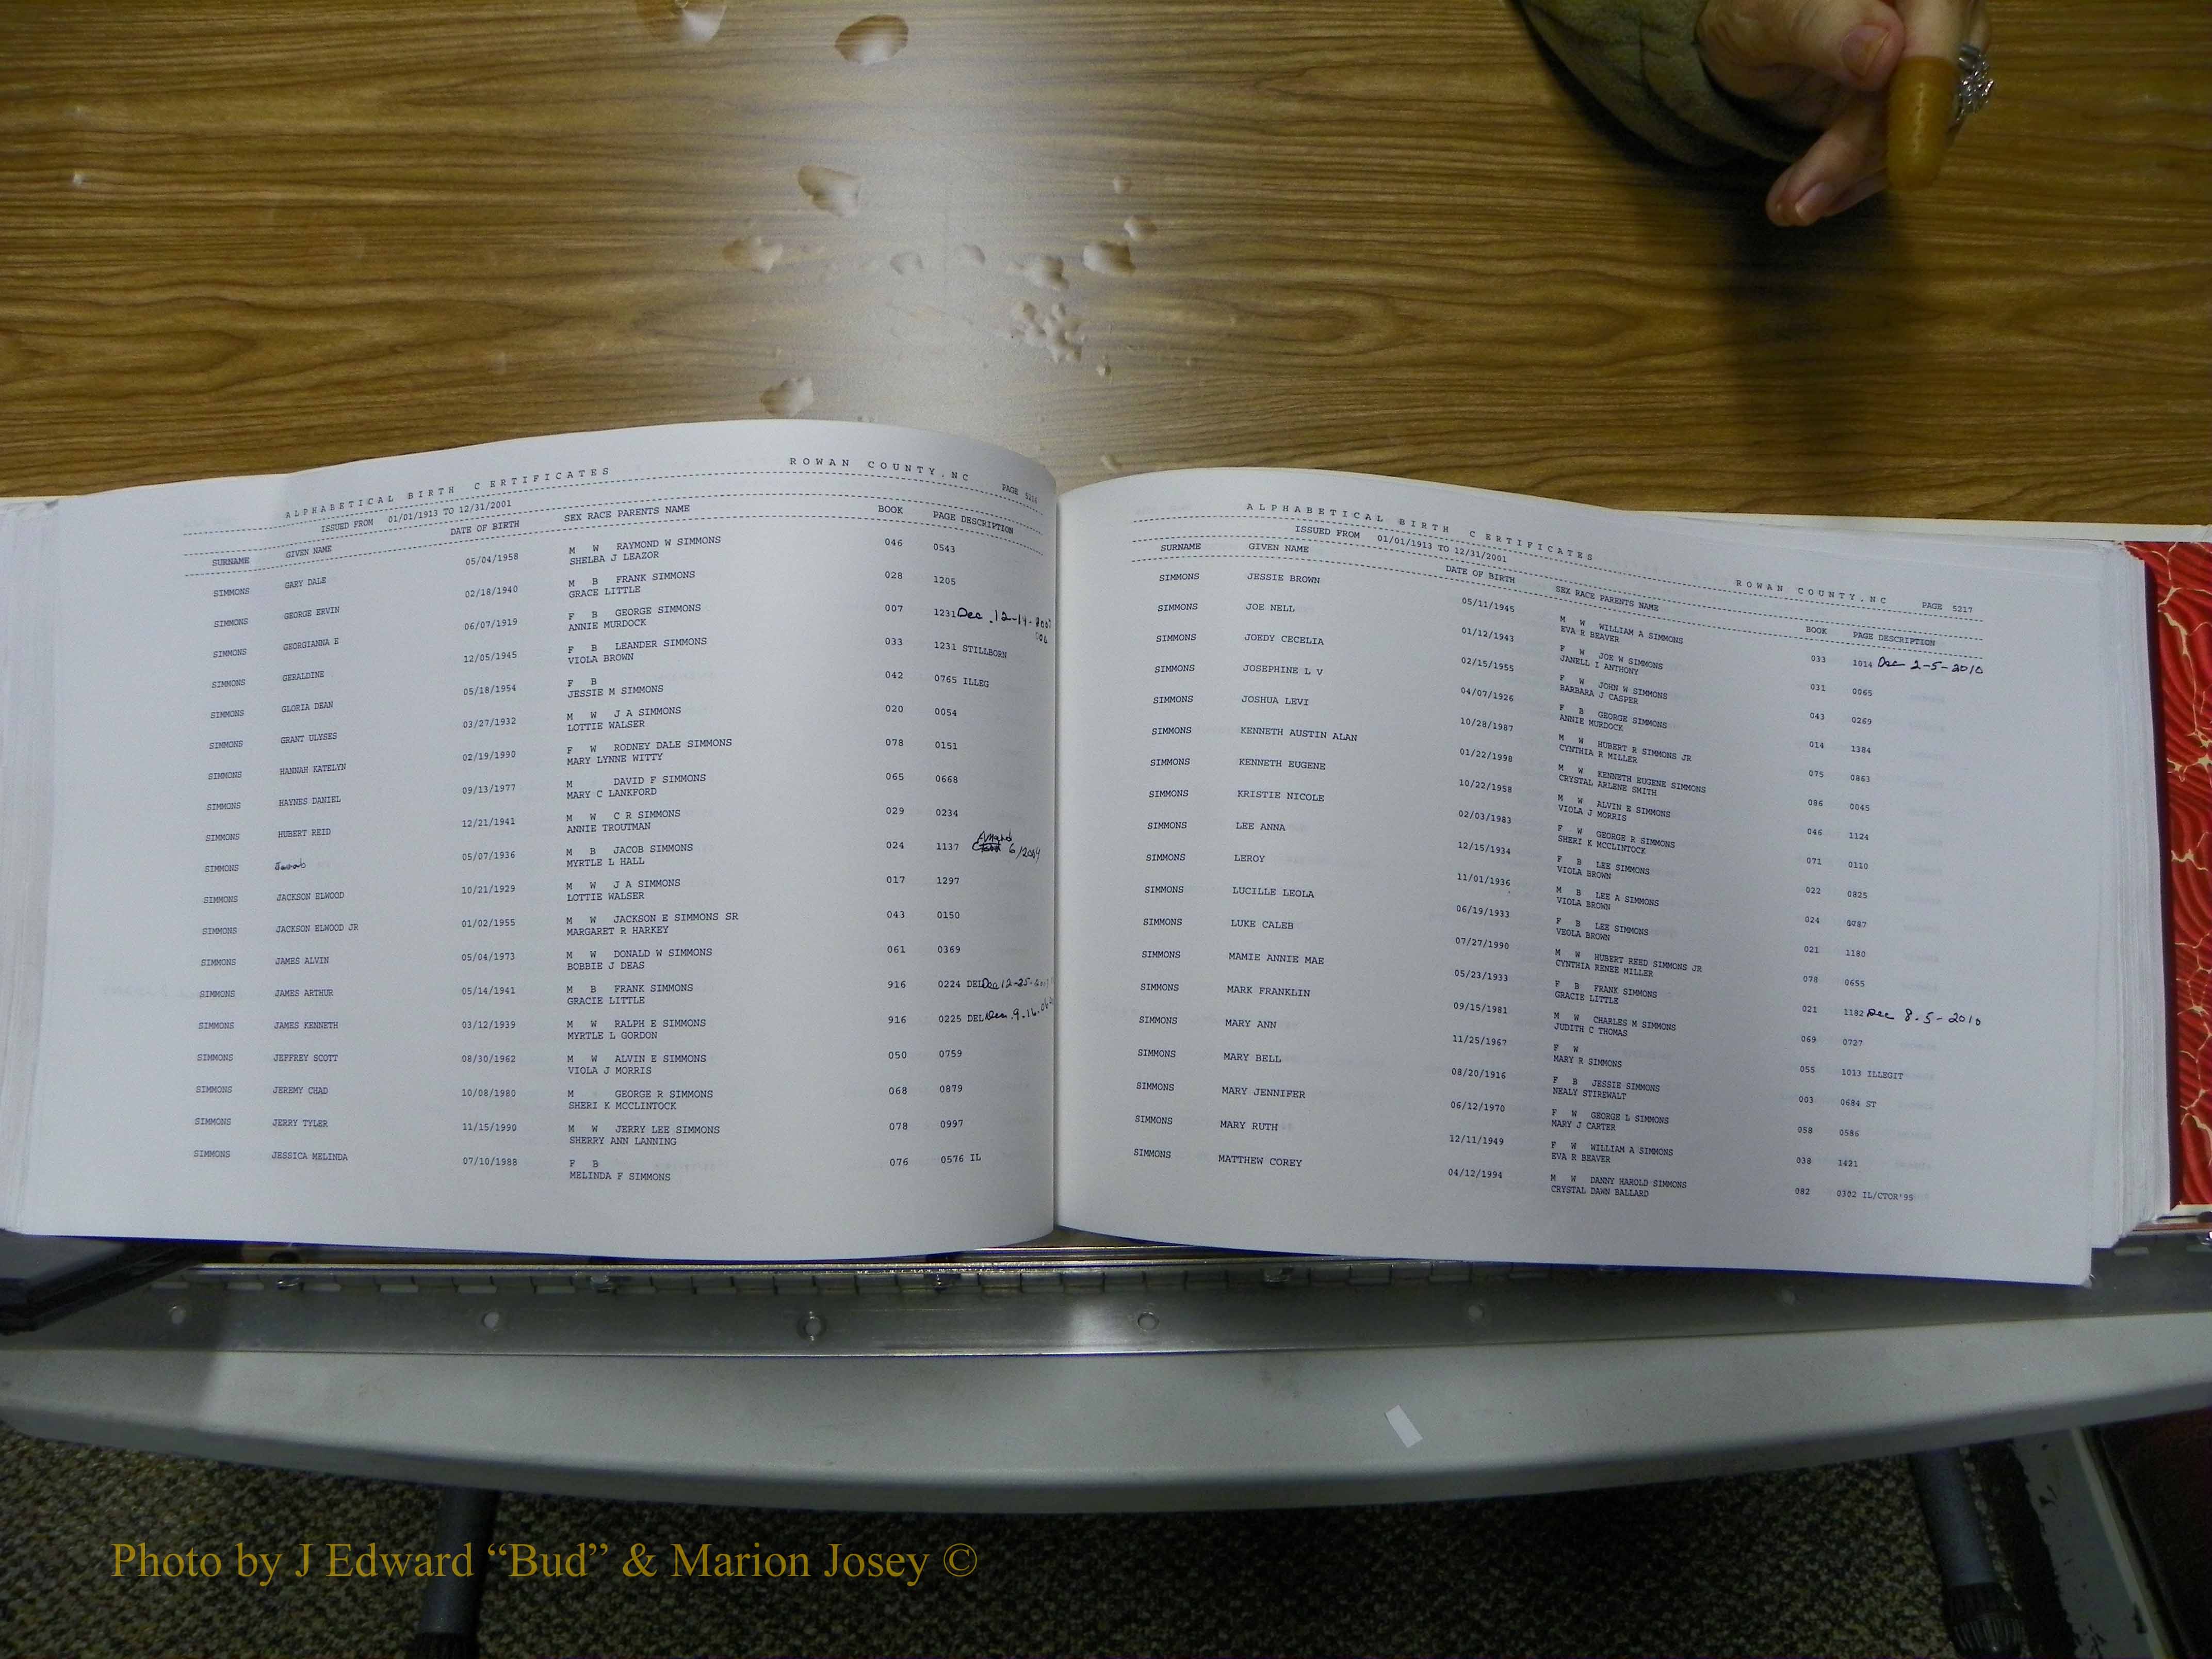 ALPHABETICAL BIRTH CERTIFICATES ROWAN COUNTY,NC PAGE
ISSUED FROM 01/01/1913 TO 12/31/2001
SURNAME GIVEN NAME DATE OF BIRTH SEX RACE PARENTS NAME BOOK PAGE DESCRIPTION
SIMMONS GARY DALE 05/04/1958 M W RAYMOND W SIMMONS 046 0543
SHELBA J LEAZOR
SIMMONS GEORGE ERVIN 02/18/1940 M B FRANK SIMMONS 028 1205
GRACE LITTLE
SIMMONS GEORGIANNA E 06/07/1919 F B GEORGE SIMMONS 007 1231 Dec. 12-14-
ANNIE MURDOCK
SIMMONS GERALDINE 12/05/1945 F B LEANDER SIMMONS 033 1231 STILLBORN
VIOLA BROWN
SIMMONS GLORIA DEAN 05/18/1954 F B 042 0765 ILLEG
JESSIE M SIMMONS
SIMMONS GRANT ULYSES 03/27/1932 M W J A SIMMONS 020 0054
LOTTIE WALSER
SIMMONS HANNAH KATELYN 02/19/1990 F W RODNEY DALE SIMMONS 078 0151
MARY LYNNE WITTY
SIMMONS HAYNES DANIEL 09/13/1977 M DAVID F SIMMONS 065 0668
MARY C LANKFORD
SIMMONS HUBERT REID 12/21/1941 M W C R SIMMONS 029 0234
ANNIE TROUTMAN
SIMMONS Jacob 05/07/1936 M B JACOB SIMMONS 024 1137 6/2004
MYRTLE L HALL
SIMMONS JACKSON ELWOOD 10/21/1929 M W J A SIMMONS 017 1297
LOTTIE WALSER
SIMMONS JACKSON ELWOOD JR 01/02/1955 M W JACKSON E SIMMONS SR 043 0150
MARGARET R HARKEY
SIMMONS JAMES ALVIN 05/04/1973 M W DONALD W SIMMONS 061 0369
BOBBIE J DEAS
SIMMONS JAMES ARTHUR 05/14/1941 M B FRANK SIMMONS 916 0224 DEL Dec 12-25-
GRACIE LITTLE
SIMMONS JAMES KENNETH 03/12/1939 M W RALPH E SIMMONS 916 0225 DEL Dec. 9-16-
MYRTLE L GORDON
SIMMONS JEFFREY SCOTT 08/30/1962 M W ALVIN E SIMMONS 050 0759
VIOLA J MORRIS
SIMMONS JEREMY CHAD 10/08/1980 M GEORGE R SIMMONS 068 0879
SHERI K MCCLINTOCK
SIMMONS JERRY TYLER 11/15/1990 M W JERRY LEE SIMMONS 078 0997
SHERRY ANN LANNING
SIMMONS JESSICA MELINDA 07/10/1988 F B 076 0576 IL
MELINDA F SIMMONS
ALPHABETICAL BIRTH CERTIFICATES ROWAN COUNTY,NC PAGE 5217
ISSUED FROM 01/01/1913 TO 12/31/2001
SURNAME GIVEN NAME DATE OF BIRTH SEX RACE PARENTS NAME BOOK PAGE DESCRIPTION
SIMMONS JESSIE BROWN 05/11/1945 M W WILLIAM A SIMMONS 033 1014 Dec 2-5-2010
EVA R BEAVER
SIMMONS JOE NELL 01/12/1943 F W JOE W SIMMONS 031 0065
JANELL I ANTHONY
SIMMONS JOEDY CECELIA 02/15/1955 F W JOHN W SIMMONS 043 0269
BARBARA J CASPER
SIMMONS JOSEPHINE L V 04/07/1926 F B GEORGE SIMMONS 014 1384
ANNIE MURDOCK
SIMMONS JOSHUA LEVI 10/28/1987 M W HUBERT R SIMMONS JR 075 0863
CYNTHIA R MILLER
SIMMONS KENNETH AUSTIN ALAN 01/22/1998 M W KENNETH EUGENE SIMMONS 086 0045
CRYSTAL ARLENE SMITH
SIMMONS KENNETH EUGENE 10/22/1958 M W ALVIN E SIMMONS 046 1124
VIOLA J MORRIS
SIMMONS KRISTIE NICOLE 02/03/1983 F W GEORGE R SIMMONS 071 0110
SHERI K MCCLINTOCK
SIMMONS LEE ANNA 12/15/1934 F B LEE SIMMONS 022 0825
VIOLA BROWN
SIMMONS LEROY 11/01/1936 M B LEE A SIMMONS 024 0787
VIOLA BROWN
SIMMONS LUCILLE LEOLA 06/19/1933 F B LEE SIMMONS 021 1180
VEOLA BROWN
SIMMONS LUKE CALEB 07/27/1990 M W HUBERT REED SIMMONS JR 078 0655
CYNTHIA RENEE MILLER
SIMMONS MAMIE ANNIE MAE 05/23/1933 F B FRANK SIMMONS 021 1182 Dec 8-5-2010
GRACIE LITTLE
SIMMONS MARK FRANKLIN 09/15/1981 M W CHARLES M SIMMONS 069 0727
JUDITH C THOMAS
SIMMONS MARY ANN 11/25/1967 F W 055 1013 ILLEGIT
MARY R SIMMONS
SIMMONS MARY BELL 08/20/1916 F B JESSIE SIMMONS 003 0684 ST
NEALY STIREWALT
SIMMONS MARY JENNIFER 06/12/1970 F W GEORGE L SIMMONS 058 0586
MARY J CARTER
SIMMONS MARY RUTH 12/11/1949 F W WILLIAM A SIMMONS 038 1421
EVA R BEAVER
SIMMONS MATTHEW COREY 04/12/1994 M W DANNY HAROLD SIMMONS 082 0302 IL/CTOR'95
CRYSTAL DAWN BALLARD
Photo by J Edward “Bud” & Marion Josey ©